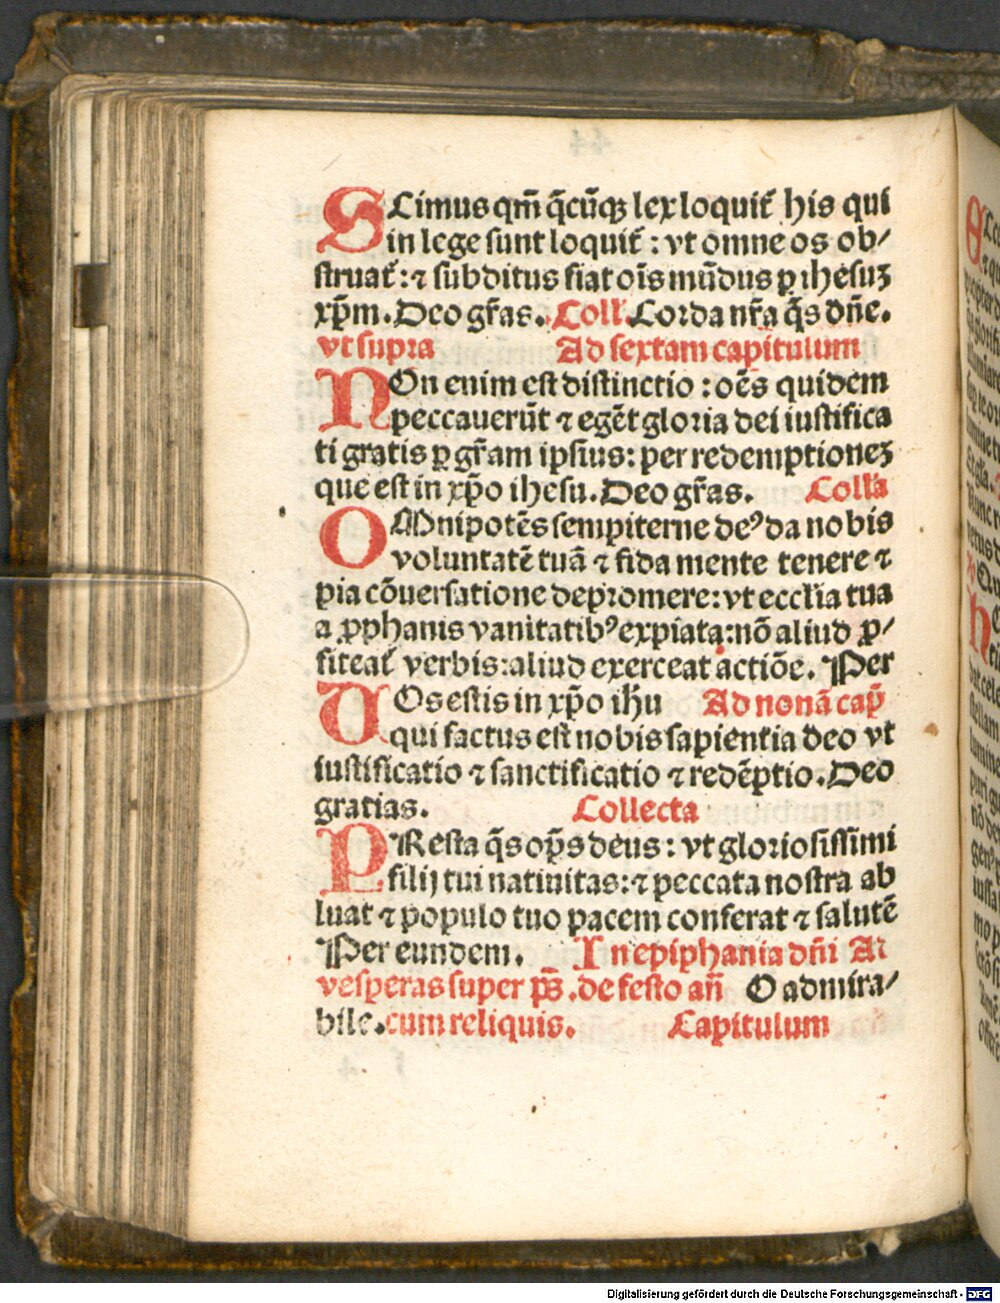 SCimus qm̄ q̄cūqꝫ lex loquit᷑ his qui
in lege sunt loquit᷑ : vt omne os ob/
struat᷑: ⁊ subditus fiat oīs mūdus ꝑ ihesuꝫ
xp̄m. Deo gr̄as. Coll'. Corda nr̄a q̄s dn̄e.
vt supra Ad sextam capitulum
NOn enim est distinctio : oēs quidem
peccauerūt ⁊ egēt gloria dei iustifica
ti gratis ꝑ gr̄am ipsius: per redemptionez
que est in xp̄o ihesu. Deo gr̄as. Coll'a
OMnipotēs sempiterne deꝰ da nobis
voluntatē tuā ⁊ fida mente tenere ⁊
pia cōuersatione depromere: vt eccl'ia tua
a ꝓphanis vanitatibꝰ expiata: nō aliud ꝓ/
fiteat᷑ verbis: aliud exerceat actiōe. Per
VOs estis in xp̄o ih̄u Ad nonā cap̄
qui factus est nobis sapientia deo vt
iustificatio ⁊ sanctificatio ⁊ redēptio. Deo
gratias. Collecta
PResta q̄s op̄s deus : vt gloriosissimi
filij tui natiuitas: ⁊ peccata nostra ab
luat ⁊ populo tuo pacem conferat ⁊ salutē
Per eundem. In epiphania dn̄i Ad
vesperas super ps̄. de festo an̄ O admira/
bile. cum reliquis. Capitulum
Digitalisierung gefördert durch die Deutsche Forschungsgemeinschaft - DFG